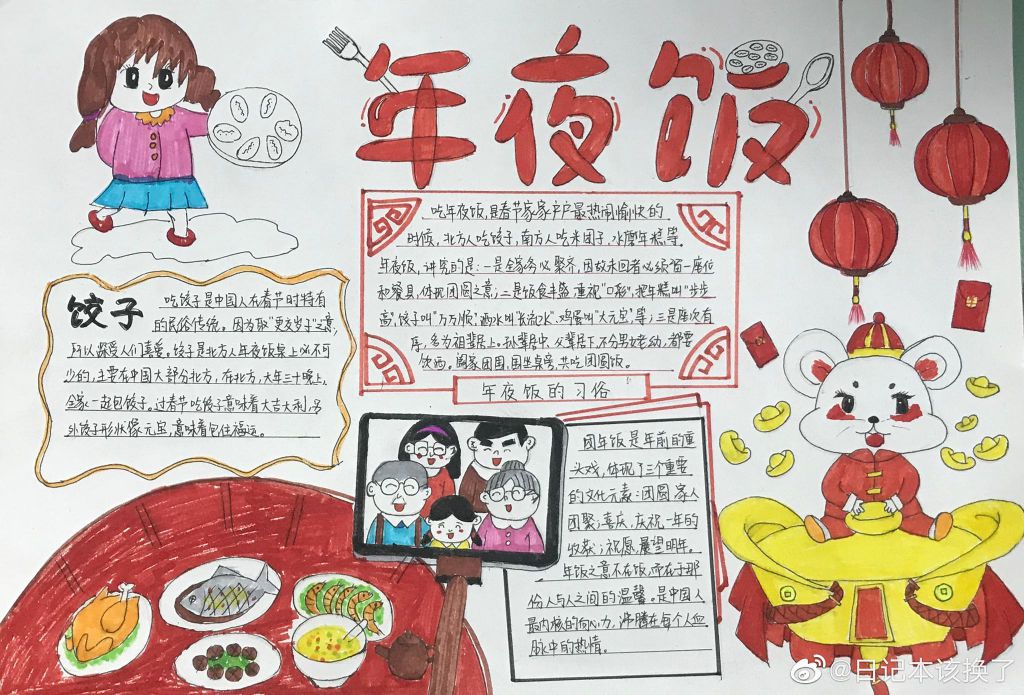 年夜饭
吃年夜饭,是春节家家户户最热闹愉快的
时候,北方人吃饺子,南方人吃米团子,水磨年糕等,
年夜饭,讲究的是:一是全家务必聚齐,因故未回者必须留一座位
和餐具,体现团圆之意;二是饭食丰盛,重视"口彩",把年糕叫"步步
高","饺子叫"万万顺",酒水叫"长流水",鸡蛋叫"大元宝",等;三是座次有
序,多为祖辈居上。孙辈居中,父辈居下,不分男女老幼,都要
饮酒。阖家团圆,围坐桌旁,共吃团圆饭。
年夜饭的习俗
饺子
吃饺子是中国人在春节时特有
的民俗传统。因为取"更交岁子"之意,
所以深受人们喜爱。饺子是北方人年夜饭桌上必不可
少的,主要在中国大部分北方,在北方,大年三十晚上,
全家一起包饺子。过春节吃饺子意味着大吉大利,另
外饺子形状像元宝,意味着包住福运。
团年饭是年前的重
头戏,体现了三个重要
的文化元素:团圆,家人
团聚;喜庆,庆祝一年的
收获;祝愿,展望明年。
年饭之意不在饭,而在于那
份人与人之间的温馨。是中国人
最内核的向心力,沸腾在每个人血
脉中的热情。
@日记本该换了